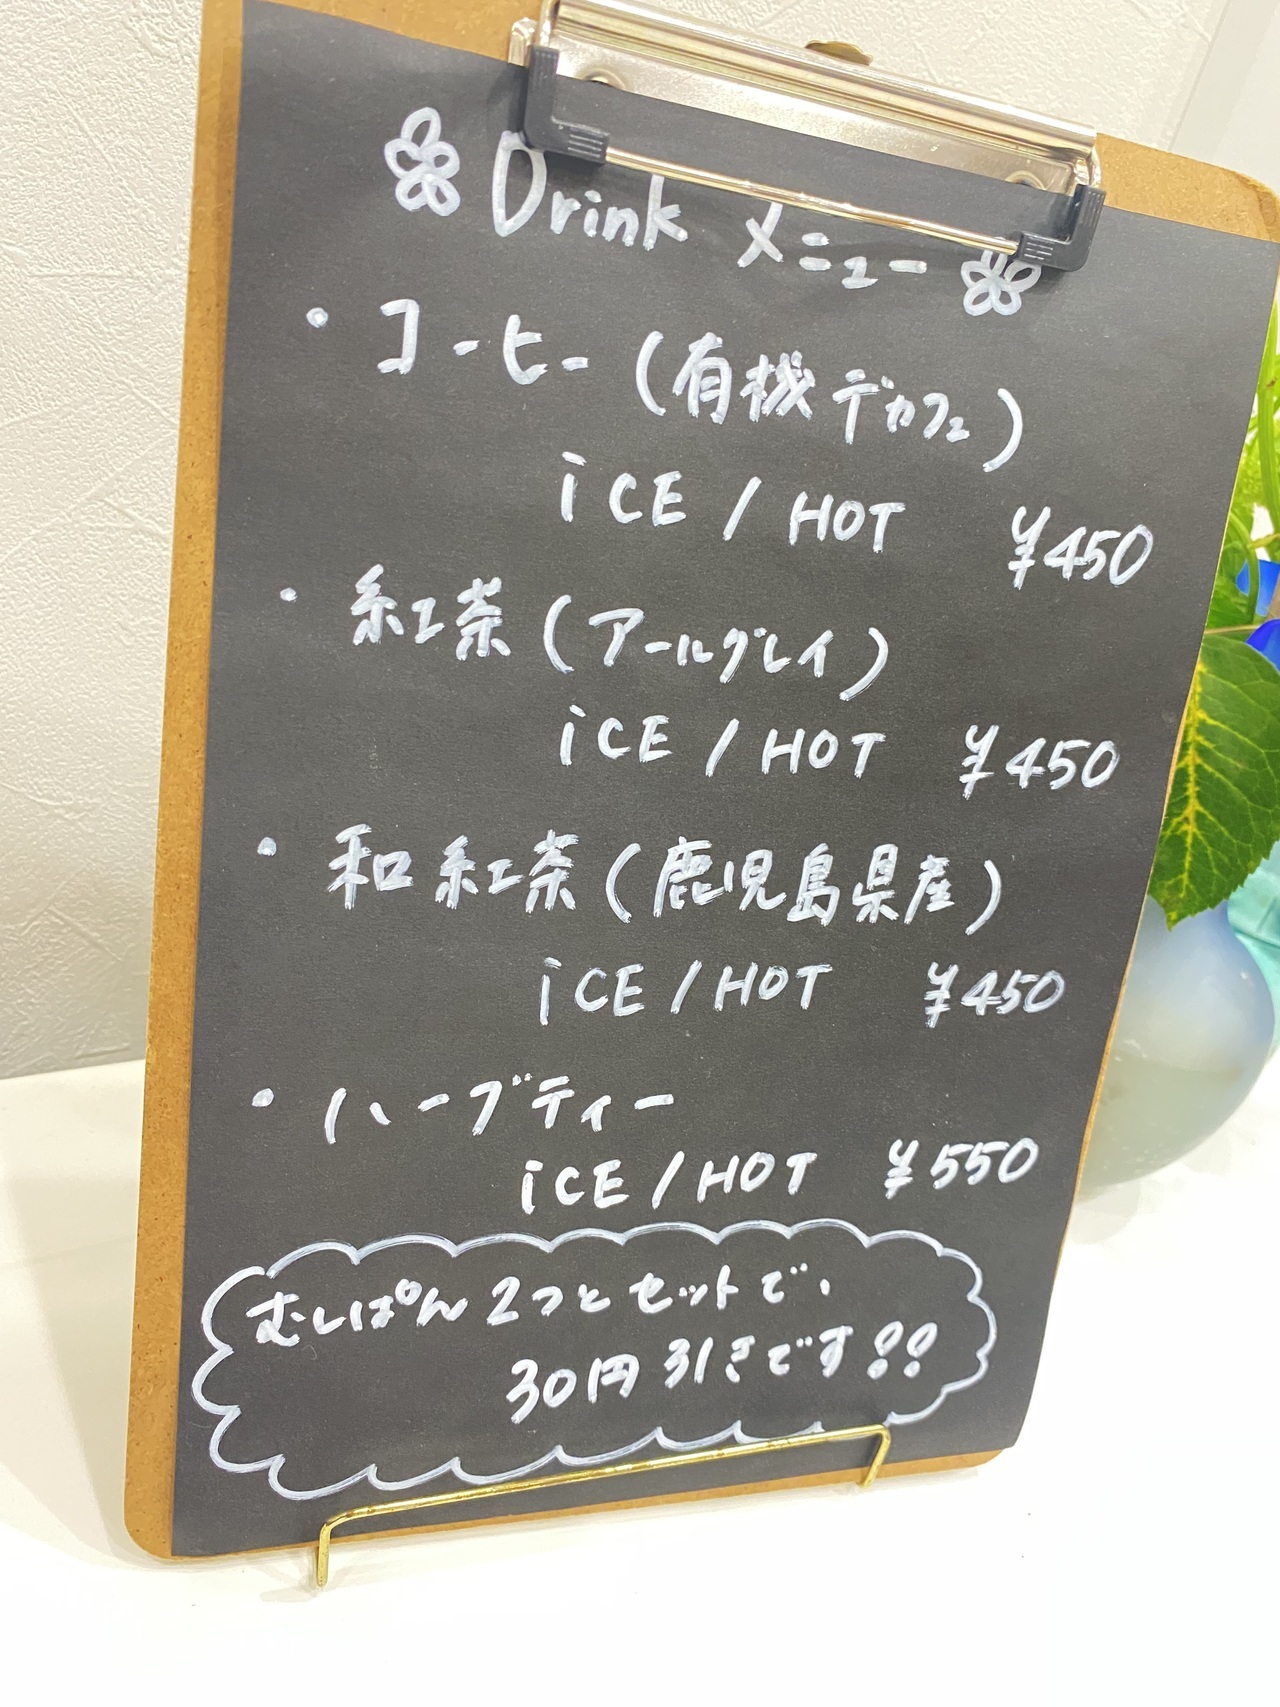 Drink メニュー
・コーヒー(有機デカフェ)
iCE / HOT ¥450
・紅茶(アールグレイ)
iCE / HOT ¥450
・和紅茶(鹿児島県産)
iCE / HOT ¥450
・ハーブティー
iCE / HOT ¥550
むしぱん2つとセットで、
30円引きです!!